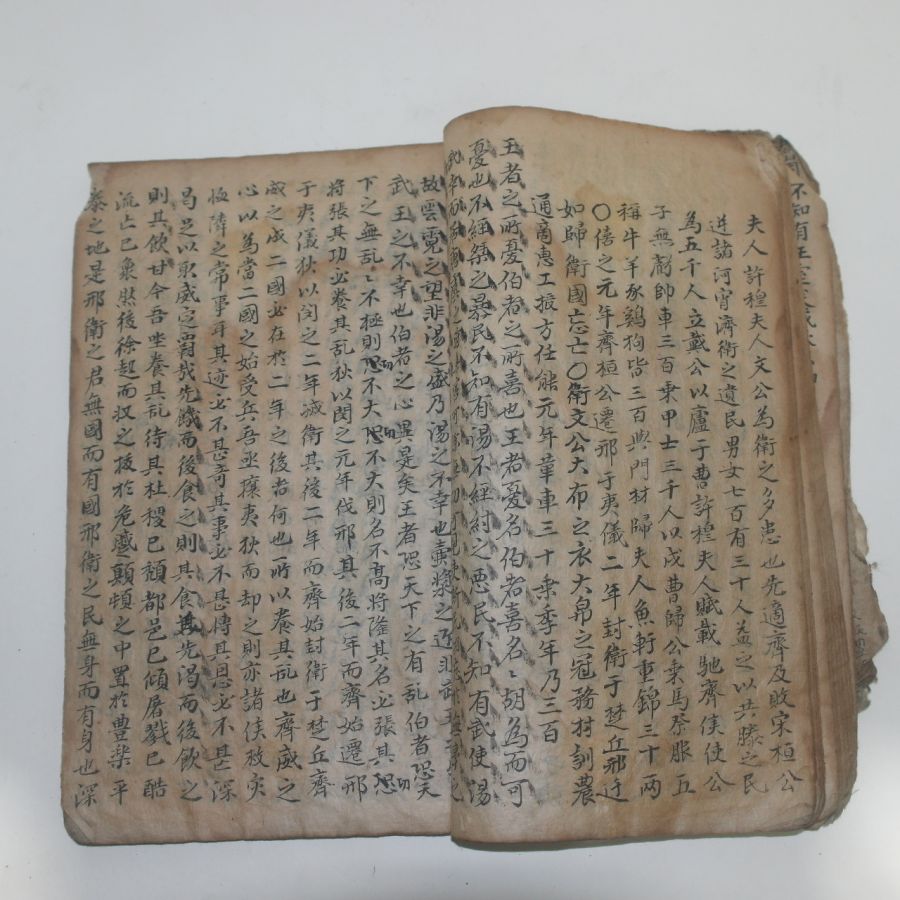 夫人許穆夫人文公為衛之多患也先適齊及敗宋桓公
逆諸河宵濟衛之遺民男女七百有三十人益之以共滕之民
為五千人立戴公以廬于曹許穆夫人賦載馳齊侯使公
子無虧帥車三百乘甲士三千人以戍曹歸公乘馬祭服五
稱牛羊豕鷄狗皆三百與門材歸夫人魚軒重錦三十兩
〇僖之元年齊桓公遷邢于夷儀二年封衛于楚丘邢迁
如歸衛國忘亡〇衛文公大布之衣大帛之冠務材訓農
通商惠工授方任能元年革車三十乘季年乃三百
王者之所憂伯者之所喜也王者憂名伯者喜名〻胡為而可
憂也不經桀之暴民不知有湯不經紂之惡民不知有武使湯
故雲霓之望非湯之盛乃湯之不幸也壺漿之迎非武王
武王之不幸也伯者之心異是矣王者恐天下之有乱伯者恐天
下之無乱〻不極則恐功不大恐功不大則名不高將隆其名必張其恐功
將張其功必養其乱狄以閔之元年伐邢其後二年而齊始遷邢
于夷儀狄以閔之二年滅衛其後二年而齊始封衛于楚丘齊
威之成二國必在於二年之後者何也所以養其乱也齊威之
心以為當二國之始受兵吾亟攘夷狄而却之則亦諸侯救灾
恤隣之常事耳其迹必不甚奇其事必不甚慱其恩必不甚深
曷足以取威定霸哉先饑而後食之則其食甚先渴而後飲之
則其飲甘今吾坐養其乱待其社稷已頹都邑已傾屠戮已酷
流亡已衆然後徐起而収之拔於危慼顛頓之中置於豊樂平
泰之地是邢衛之君無國而有國邢衛之民無身而有身也深